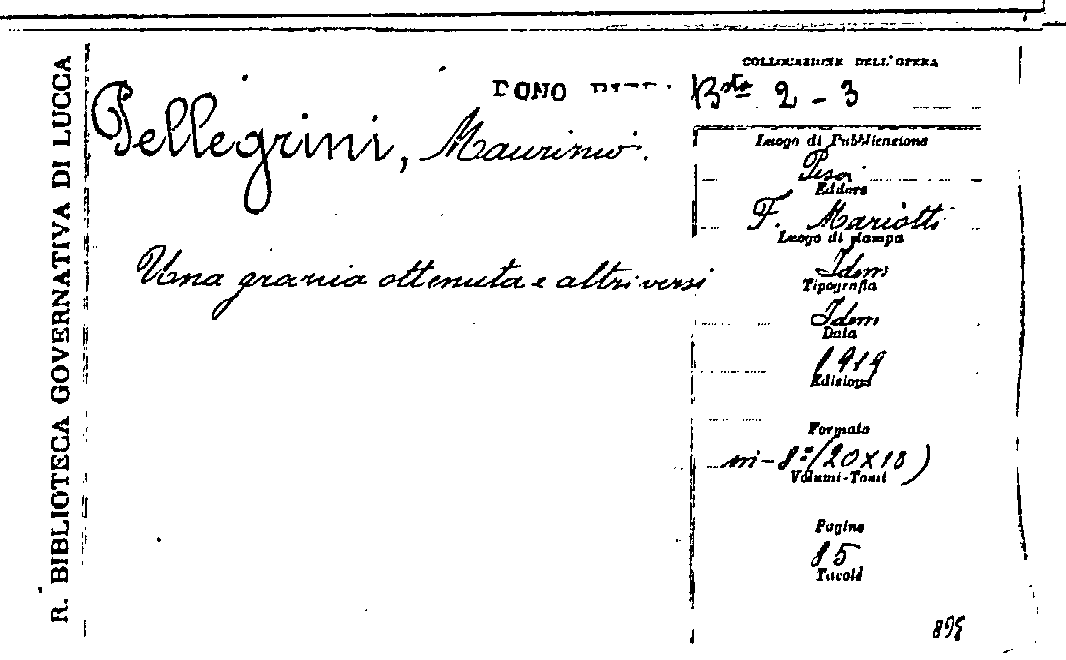 R. BIBLIOTECA GOVERNATIVA DI LUCCA
COLLOCAZIONE DELL'OPERA
DONO
Bta 2 - 3
Pellegrini, Maurinio.
Luogo di Pubblicazione
Editore
F. Mariotti
Luogo di stampa
Una grazia ottenuta e altri versi
Idem
Tipografia
Idem
Data
1919
Edizione
Formato
in-8º (20X13)
Volumi-Tomi
Pagine
85
Tavole